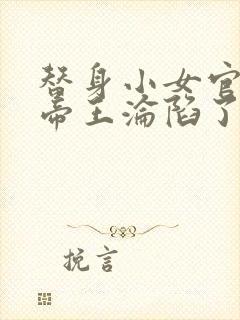 替身小女官
帝王沦陷了
挽言